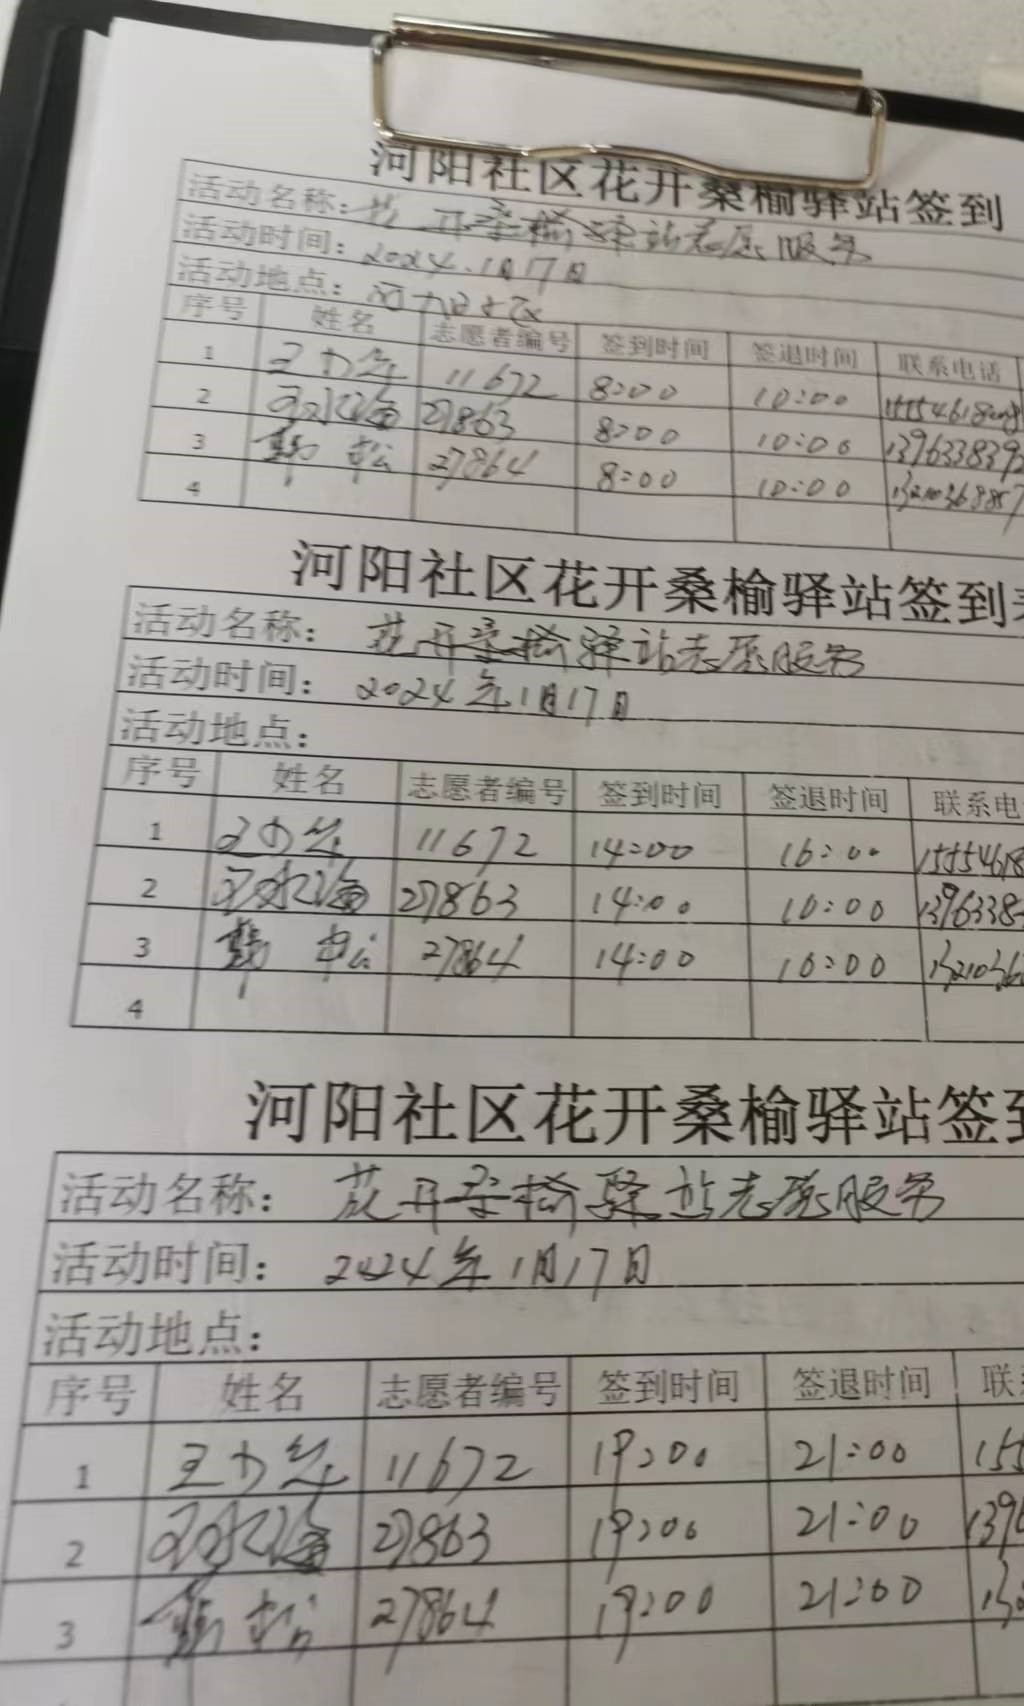 河阳社区花开桑榆驿站签到
活动名称：花开桑榆驿站志愿服务
活动时间：2024.1月17日
活动地点：河阳社区
序号 姓名 志愿者编号 签到时间 签退时间 联系电话
1 11672 8:00 10:00
2 27863 8:00 10:00
3 27864 8:00 10:00
4
河阳社区花开桑榆驿站签到
活动名称：花开桑榆驿站志愿服务
活动时间：2024年1月17日
活动地点：
序号 姓名 志愿者编号 签到时间 签退时间 联系电
1 11672 14:00 16:00
2 27863 14:00 16:00
3 27864 14:00 16:00
4
河阳社区花开桑榆驿站签
活动名称：花开桑榆驿站志愿服务
活动时间：2024年1月17日
活动地点：
序号 姓名 志愿者编号 签到时间 签退时间 联
1 11672 19:00 21:00 155
2 27863 19:00 21:00 139
3 27864 19:00 21:00